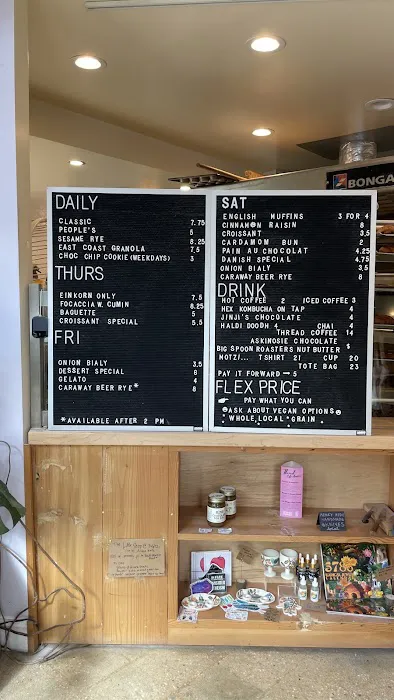 DAILY
CLASSIC 7.75
PEOPLE'S 5
SESAME RYE 8.25
EAST COAST GRANOLA 7.5
CHOC CHIP COOKIE (WEEKDAYS) 3
THURS
EINKORN ONLY 7.5
FOCACCIA W. CUMIN 8.25
BAGUETTE 5
CROISSANT SPECIAL 5.5
FRI
ONION BIALY 3.5
DESSERT SPECIAL 6
GELATO 4
CARAWAY BEER RYE* 8
*AVAILABLE AFTER 2 PM
SAT
ENGLISH MUFFINS 3 FOR 4
CINNAMON RAISIN 8
CROISSANT 3.5
CARDAMOM BUN 2
PAIN AU CHOCOLAT 4.25
DANISH SPECIAL 4.75
ONION BIALY 3.5
CARAWAY BEER RYE 8
DRINK
HOT COFFEE 2 ICED COFFEE 3
HEX KOMBUCHA ON TAP 4
JINJI'S CHOCOLATE 4
HALDI DOODH 4 CHAI 4
THREAD COFFEE 14
ASKINOSIE CHOCOLATE
BIG SPOON ROASTERS NUT BUTTER $
MOTZI... TSHIRT 21 CUP 20
TOTE BAG 23
PAY IT FORWARD → 5
FLEX PRICE
PAY WHAT YOU CAN
ASK ABOUT VEGAN OPTIONS
WHOLE LOCAL GRAIN
BONGA